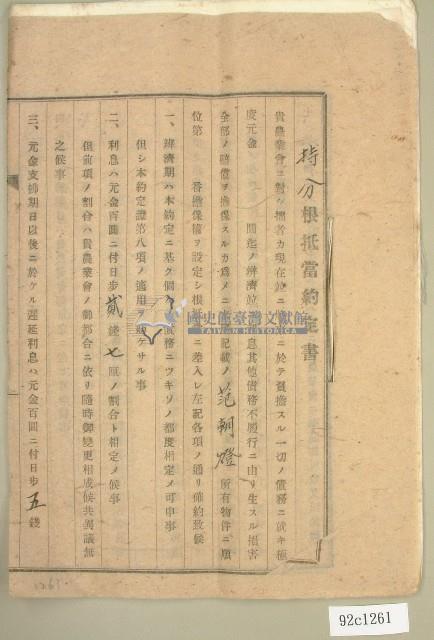 持分根抵當約定書
貴農業會ニ對シ拙者カ現在竝ニ將來ニ於テ負擔スル一切ノ債務ニ就キ極
度元金 圓迄ノ辨濟竝 息其他債務不履行ニ由リ生スル損害
全部ノ賠償ヲ擔保スルカ爲メニ 記載ノ范朝燈所有物件ニ順
位第 番擔保權ヲ設定シ根抵 ニ差入レ左記各項ノ通リ確約致候
一、辨濟期ハ本約定ニ基ク個 務ニツキソノ都度相定メ可申事
但シ本約定證第八項ノ適用ヲ ケサル事
二、利息ハ元金百圓ニ付日步貳錢七厘ノ割合ト相定メ候事
但前項ノ割合ハ貴農業會ノ御都合ニ依リ隨時御變更相成候共異議無
之候事
三、元金支拂期日以後ニ於ケル遲延利息ハ元金百圓ニ付日步五錢
國史館臺灣文獻館
TAIWAN HISTORICA
1261
92c1261